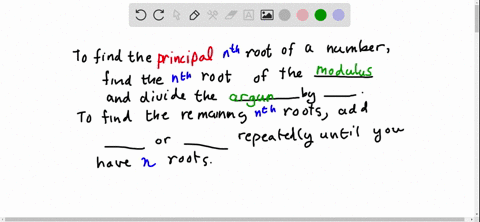 To find the principal nth root of a number,
find the nth root of the modulus
and divide the argum by ____.
To find the remaining nth roots, add
____ or ____ repeatedly until you
have n roots.